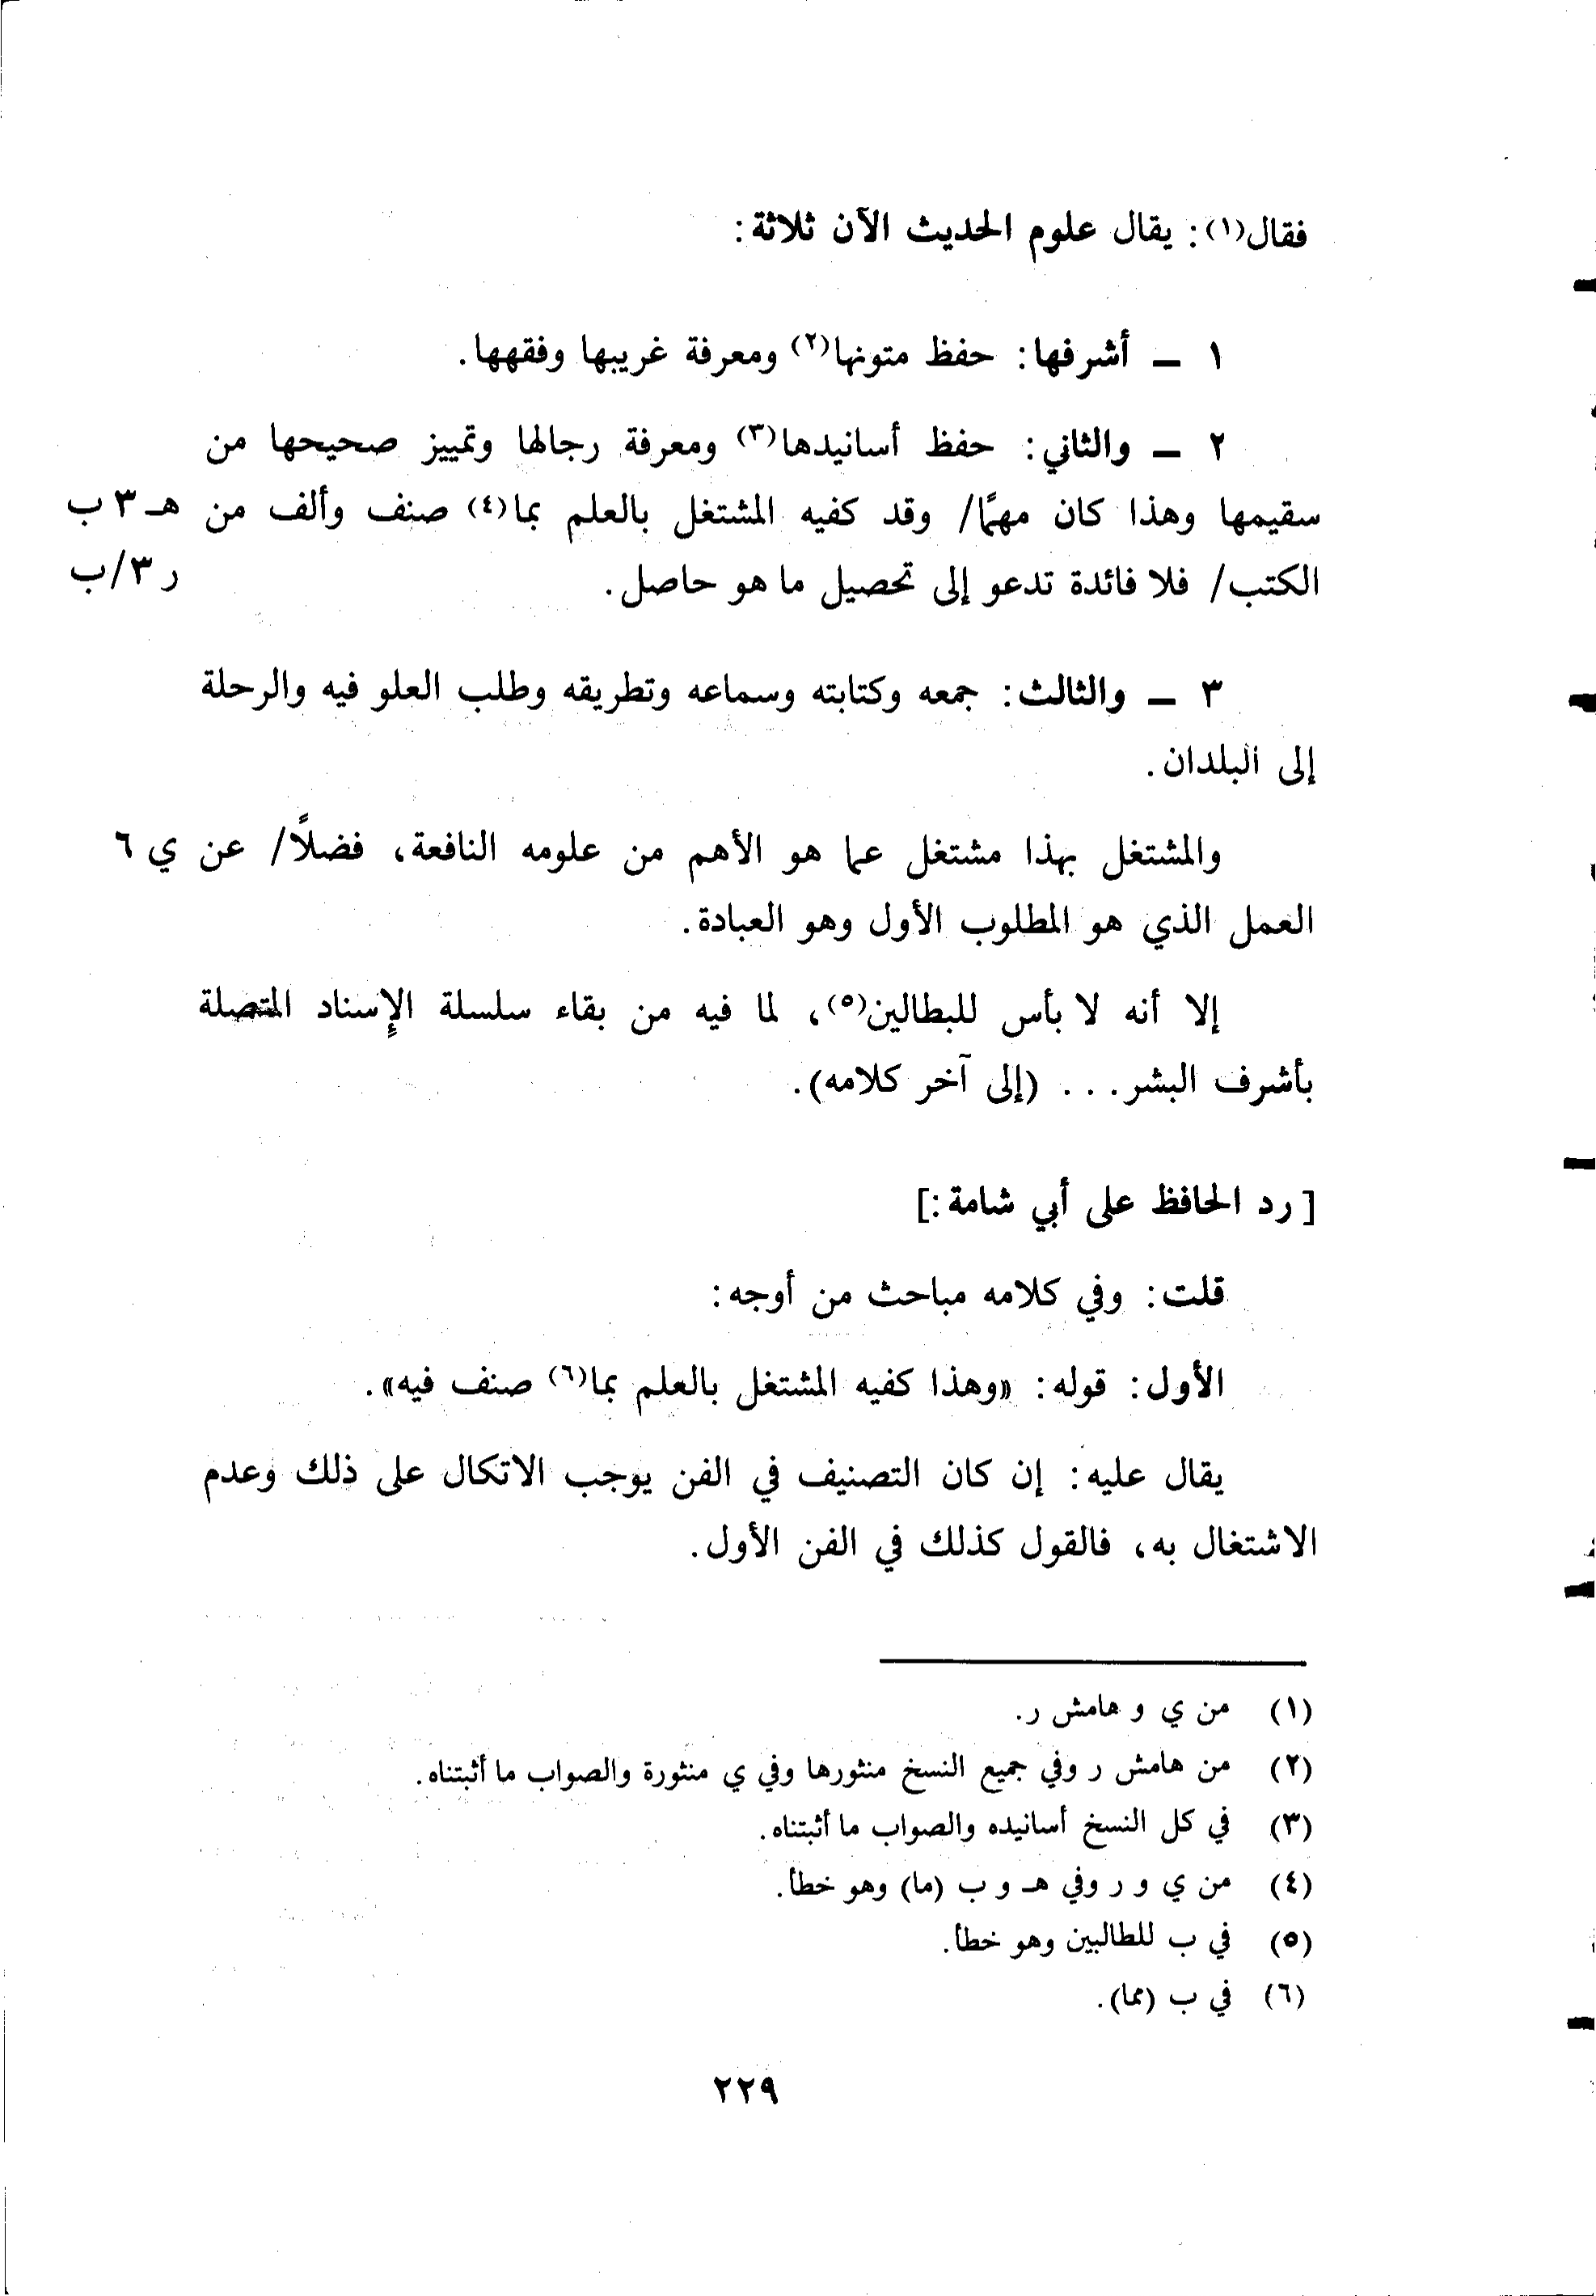 فقال(١): يقال علوم الحديث الآن ثلاثة:
١ ــ أشرفها: حفظ متونها(٢) ومعرفة غريبها وفقهها.
٢ ــ والثاني: حفظ أسانيدها(٣) ومعرفة رجالها وتمييز صحيحها من
سقيمها وهذا كان مهمًا/ وقد كفيه المشتغل بالعلم بما(٤) صنف وألف من هـ ٣ ب
الكتب/ فلا فائدة تدعو إلى تحصيل ما هو حاصل. ر ٣/ب
٣ ــ والثالث: جمعه وكتابته وسماعه وتطريقه وطلب العلو فيه والرحلة
إلى البلدان.
والمشتغل بهذا مشتغل عما هو الأهم من علومه النافعة، فضلاً/ عن ي ٦
العمل الذي هو المطلوب الأول وهو العبادة.
إلا أنه لا بأس للبطالين(٥)، لما فيه من بقاء سلسلة الإسناد المتصلة
بأشرف البشر. . . (إلى آخر كلامه).
[رد الحافظ على أبي شامة:]
قلت: وفي كلامه مباحث من أوجه:
الأول: قوله: «وهذا كفيه المشتغل بالعلم بما(٦) صنف فيه».
يقال عليه: إن كان التصنيف في الفن يوجب الاتكال على ذلك وعدم
الاشتغال به، فالقول كذلك في الفن الأول.
(١) من ي و هامش ر.
(٢) من هامش ر وفي جميع النسخ منثورها وفي ي منثورة والصواب ما أثبتناه.
(٣) في كل النسخ أسانيده والصواب ما أثبتناه.
(٤) من ي و ر وفي هـ و ب (ما) وهو خطأ.
(٥) في ب للطالبين وهو خطأ.
(٦) في ب (مما).
٢٢٩